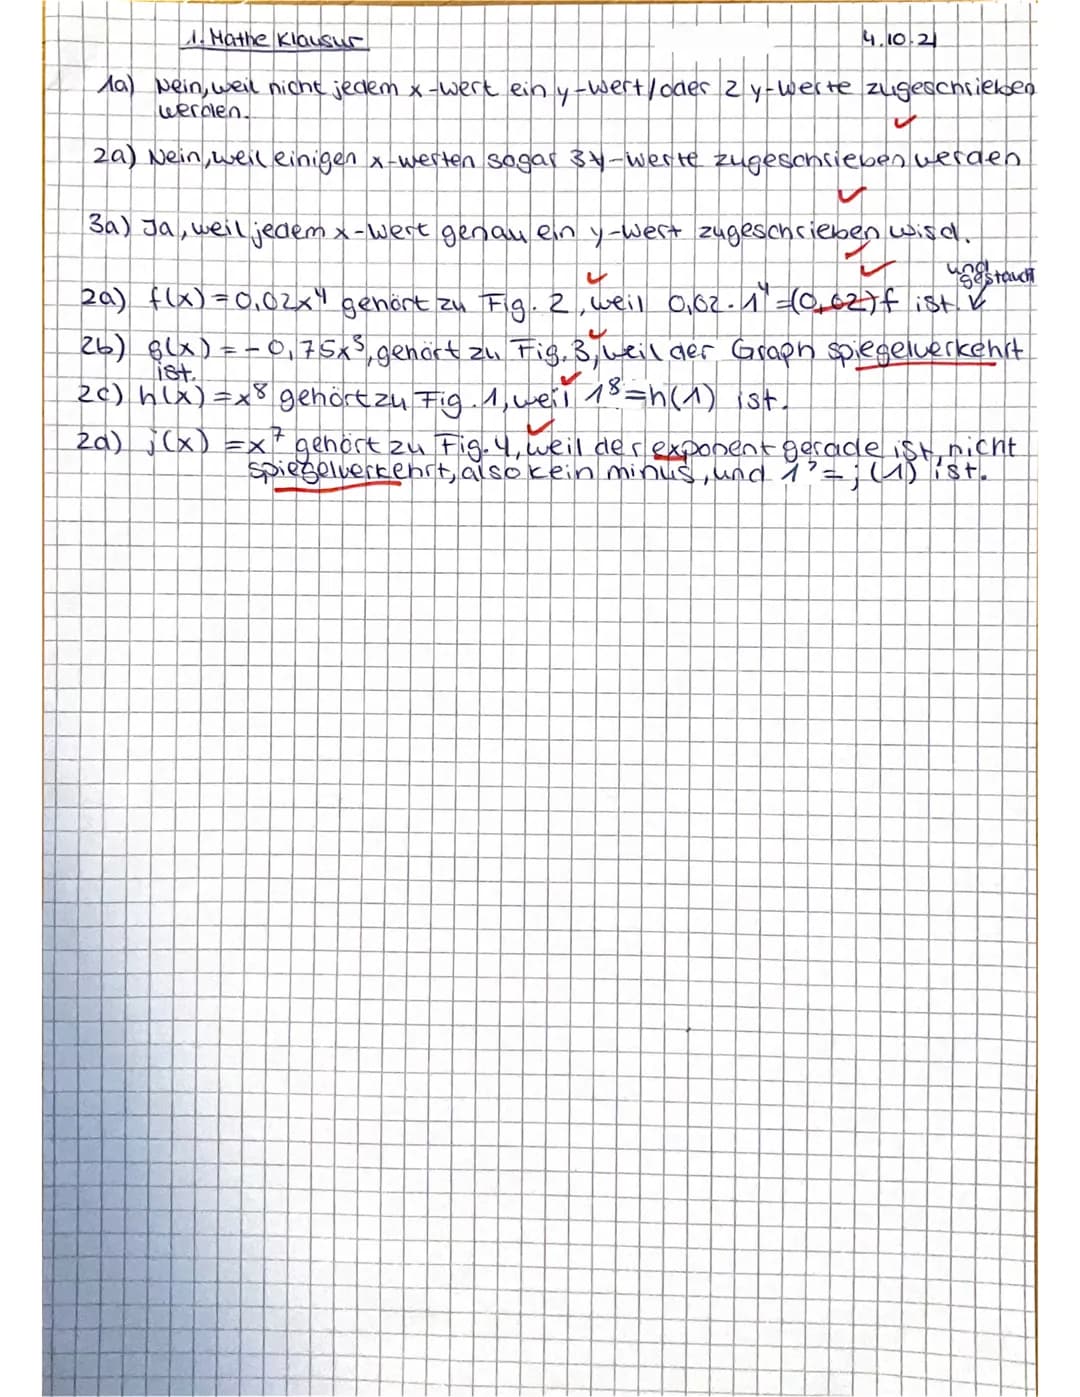 1. Mathe Klausur 4.10.21
1a) Nein, weil nicht jedem x-wert ein y-Wert/oder 2 y-Werte zugeschrieben
werden.
2a) Nein, weil einigen x-werten sogar 3 y-werte zugeschrieben werden
3a) Ja, weil jedem x-Wert genau ein y-Wert zugeschrieben wird.
und
gestaucht
2a) f(x)=0,02x⁴ gehört zu Fig. 2, weil 0,02·1⁴=(0,02)f ist.
2b) g(x)=-0,75x³, gehört zu Fig. 3, weil der Graph spiegelverkehrt
ist.
2c) h(x)=x⁸ gehört zu Fig. 1, weil 1⁸=h(1) ist.
2d) j(x)=x⁷ gehört zu Fig. 4, weil der exponent gerade ist, nicht
spiegelverkehrt, also kein minus, und 1⁷=j(1) ist.